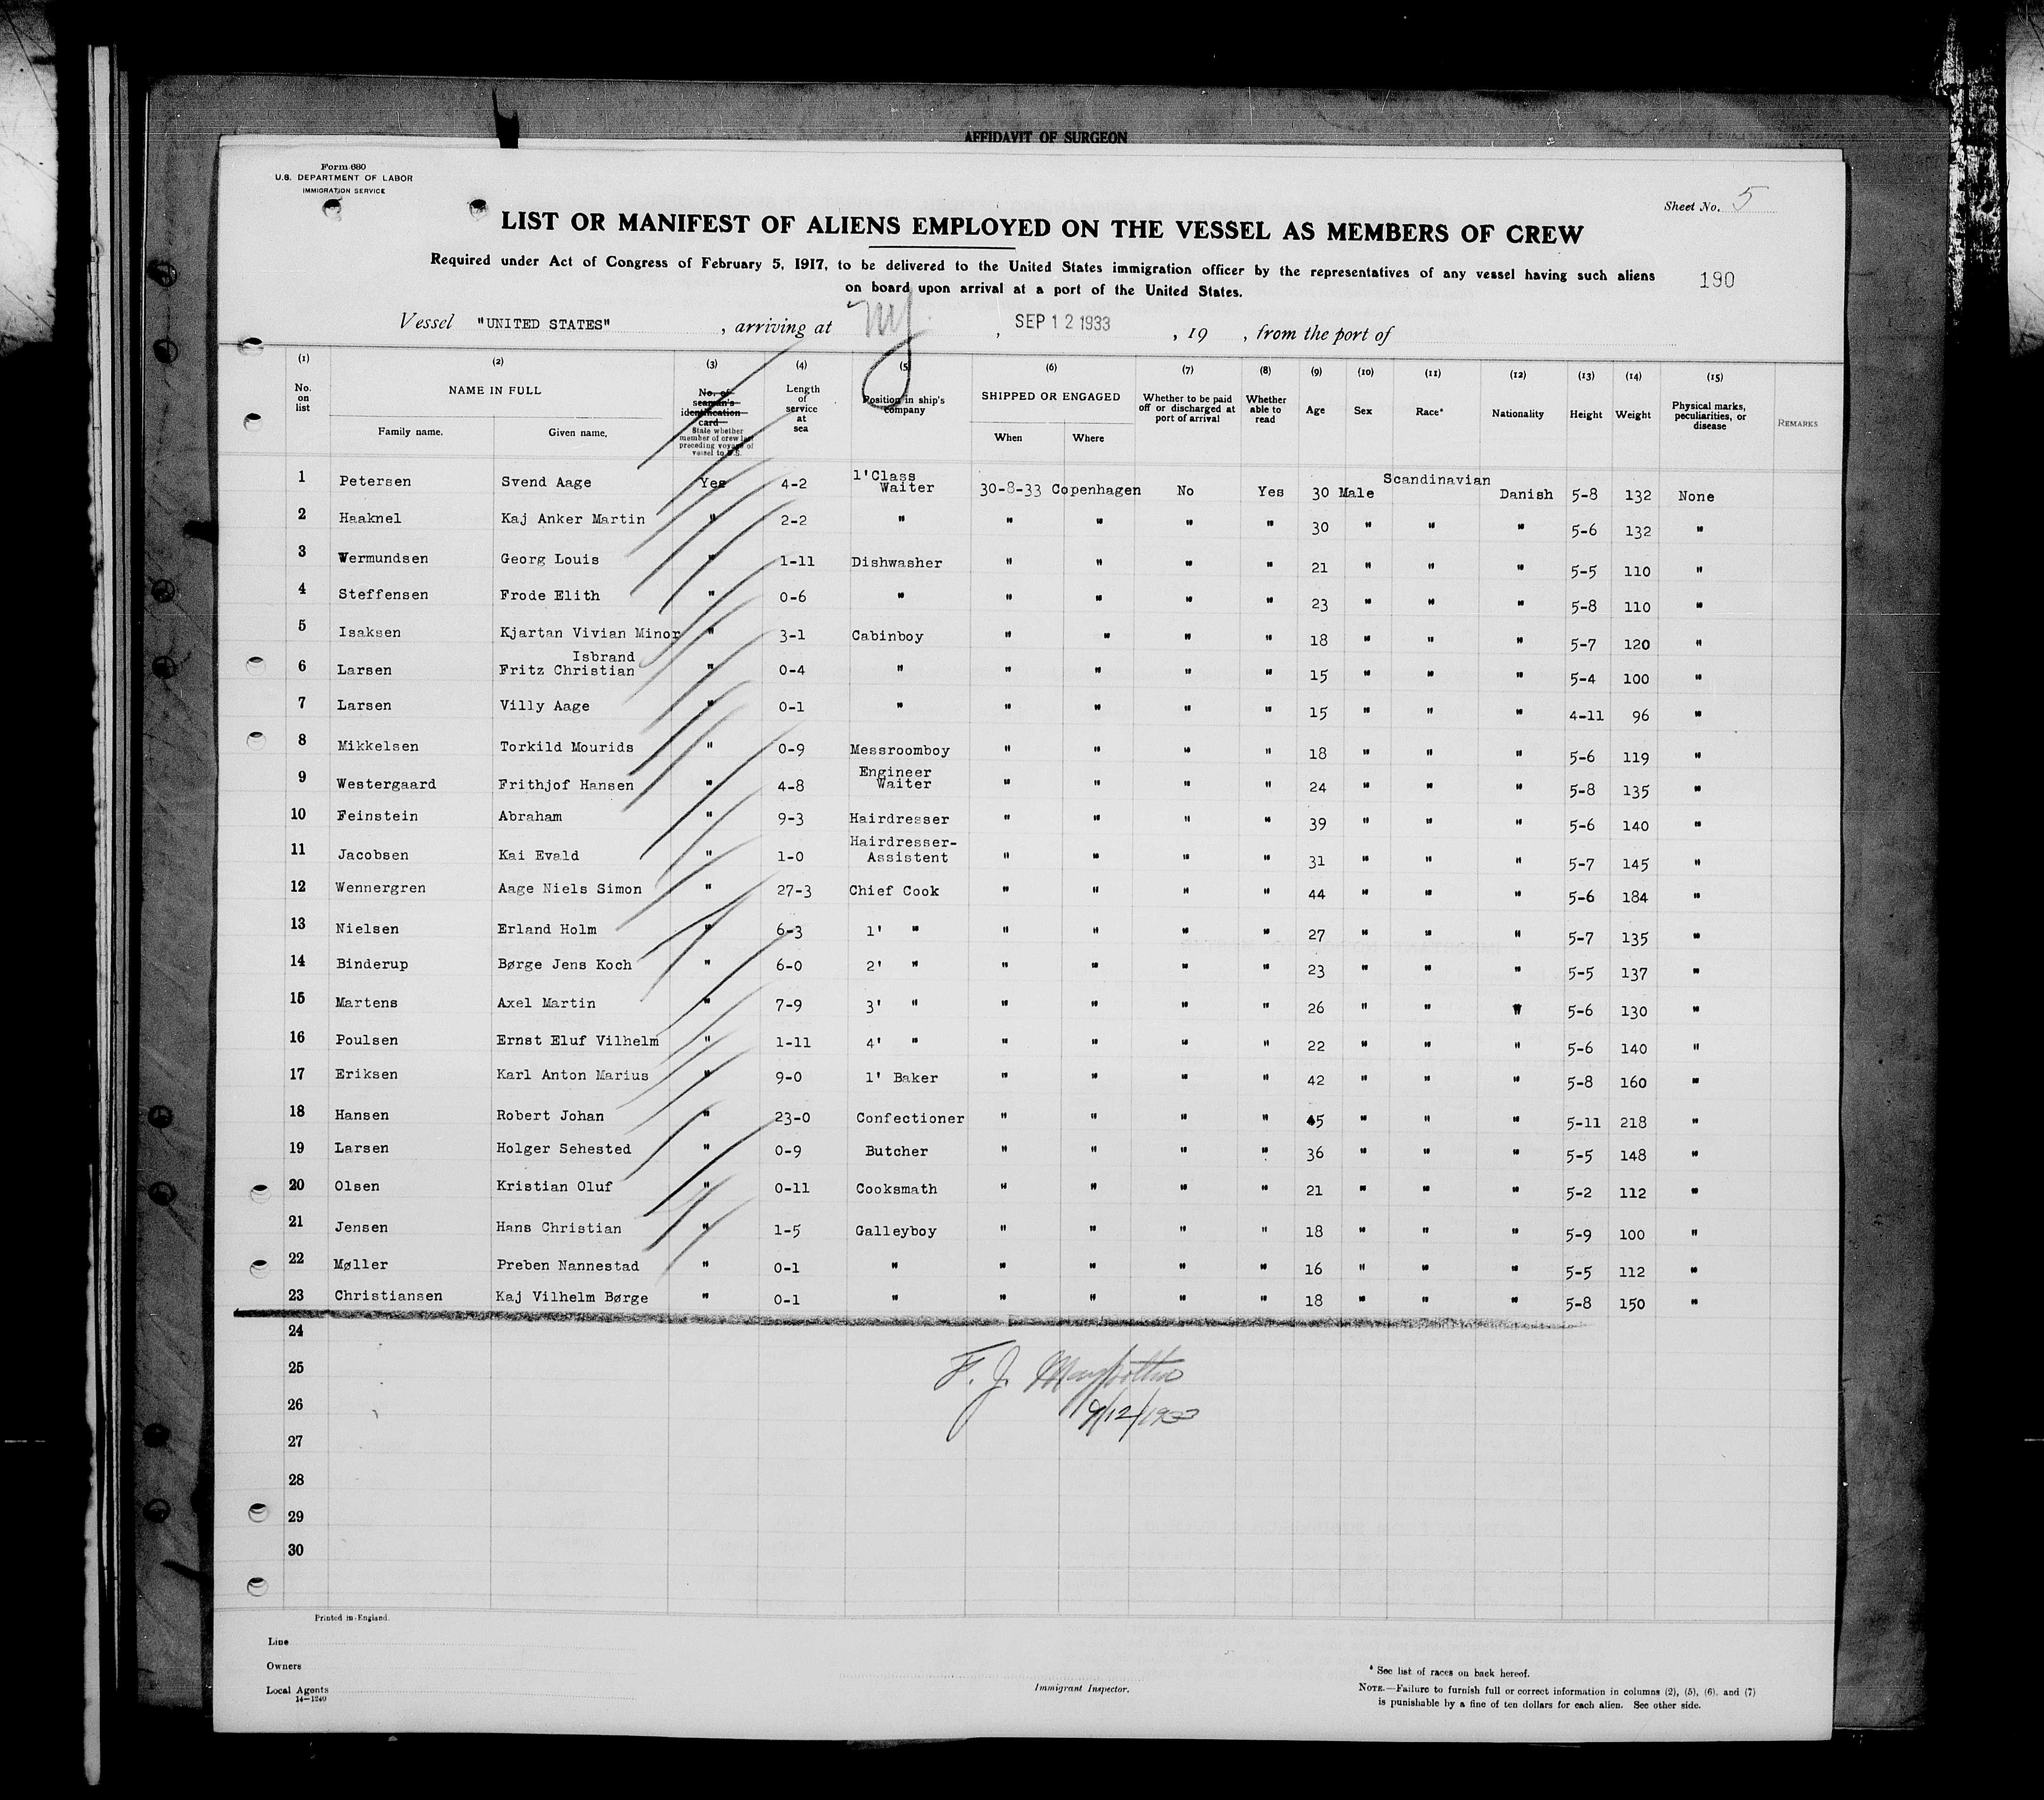 AFFIDAVIT OF SURGEON
Form 680
U.S. DEPARTMENT OF LABOR
IMMIGRATION SERVICE
Sheet No. 5
LIST OR MANIFEST OF ALIENS EMPLOYED ON THE VESSEL AS MEMBERS OF CREW
Required under Act of Congress of February 5, 1917, to be delivered to the United States immigration officer by the representatives of any vessel having such aliens
on board upon arrival at a port of the United States.
190
Vessel "UNITED STATES" , arriving at NY , SEP 12 1933 , 19 , from the port of
(1) (2) (3) (4) (5) (6) (7) (8) (9) (10) (11) (12) (13) (14) (15)
No. on list NAME IN FULL Family name. Given name. No. of seaman's identification card State whether member of crew last preceding voyage of vessel to U.S. Length of service at sea Position in ship's company SHIPPED OR ENGAGED When Where Whether to be paid off or discharged at port of arrival Whether able to read Age Sex Race* Nationality Height Weight Physical marks, peculiarities, or disease REMARKS
1 Petersen Svend Aage Yes 4-2 1'Class Waiter 30-8-33 Copenhagen No Yes 30 Male Scandinavian Danish 5-8 132 None
2 Haaknel Kaj Anker Martin " 2-2 " " " " " 30 " " " 5-6 132 "
3 Wermundsen Georg Louis " 1-11 Dishwasher " " " " 21 " " " 5-5 110 "
4 Steffensen Frode Elith " 0-6 " " " " " 23 " " " 5-8 110 "
5 Isaksen Kjartan Vivian Minor " 3-1 Cabinboy " " " " 18 " " " 5-7 120 "
Isbrand
6 Larsen Fritz Christian " 0-4 " " " " " 15 " " " 5-4 100 "
7 Larsen Villy Aage " 0-1 " " " " " 15 " " " 4-11 96 "
8 Mikkelsen Torkild Mourids " 0-9 Messroomboy " " " " 18 " " " 5-6 119 "
9 Westergaard Frithjof Hansen " 4-8 Engineer Waiter " " " " 24 " " " 5-8 135 "
10 Feinstein Abraham " 9-3 Hairdresser " " " " 39 " " " 5-6 140 "
11 Jacobsen Kai Evald " 1-0 Hairdresser- Assistent " " " " 31 " " " 5-7 145 "
12 Wennergren Aage Niels Simon " 27-3 Chief Cook " " " " 44 " " " 5-6 184 "
13 Nielsen Erland Holm " 6-3 1' " " " " " 27 " " " 5-7 135 "
14 Binderup Børge Jens Koch " 6-0 2' " " " " " 23 " " " 5-5 137 "
15 Martens Axel Martin " 7-9 3' " " " " " 26 " " " 5-6 130 "
16 Poulsen Ernst Eluf Vilhelm " 1-11 4' " " " " " 22 " " " 5-6 140 "
17 Eriksen Karl Anton Marius " 9-0 1' Baker " " " " 42 " " " 5-8 160 "
18 Hansen Robert Johan " 23-0 Confectioner " " " " 45 " " " 5-11 218 "
19 Larsen Holger Sehested " 0-9 Butcher " " " " 36 " " " 5-5 148 "
20 Olsen Kristian Oluf " 0-11 Cooksmath " " " " 21 " " " 5-2 112 "
21 Jensen Hans Christian " 1-5 Galleyboy " " " " 18 " " " 5-9 100 "
22 Møller Preben Nannestad " 0-1 " " " " " 16 " " " 5-5 112 "
23 Christiansen Kaj Vilhelm Børge " 0-1 " " " " " 18 " " " 5-8 150 "
24
25
F. J.
26
9/12/1933
27
28
29
30
Printed in England.
Line
Owners
Local Agents
14-1240
Immigrant Inspector.
* See list of races on back hereof.
NOTE.—Failure to furnish full or correct information in columns (2), (5), (6), and (7)
is punishable by a fine of ten dollars for each alien. See other side.